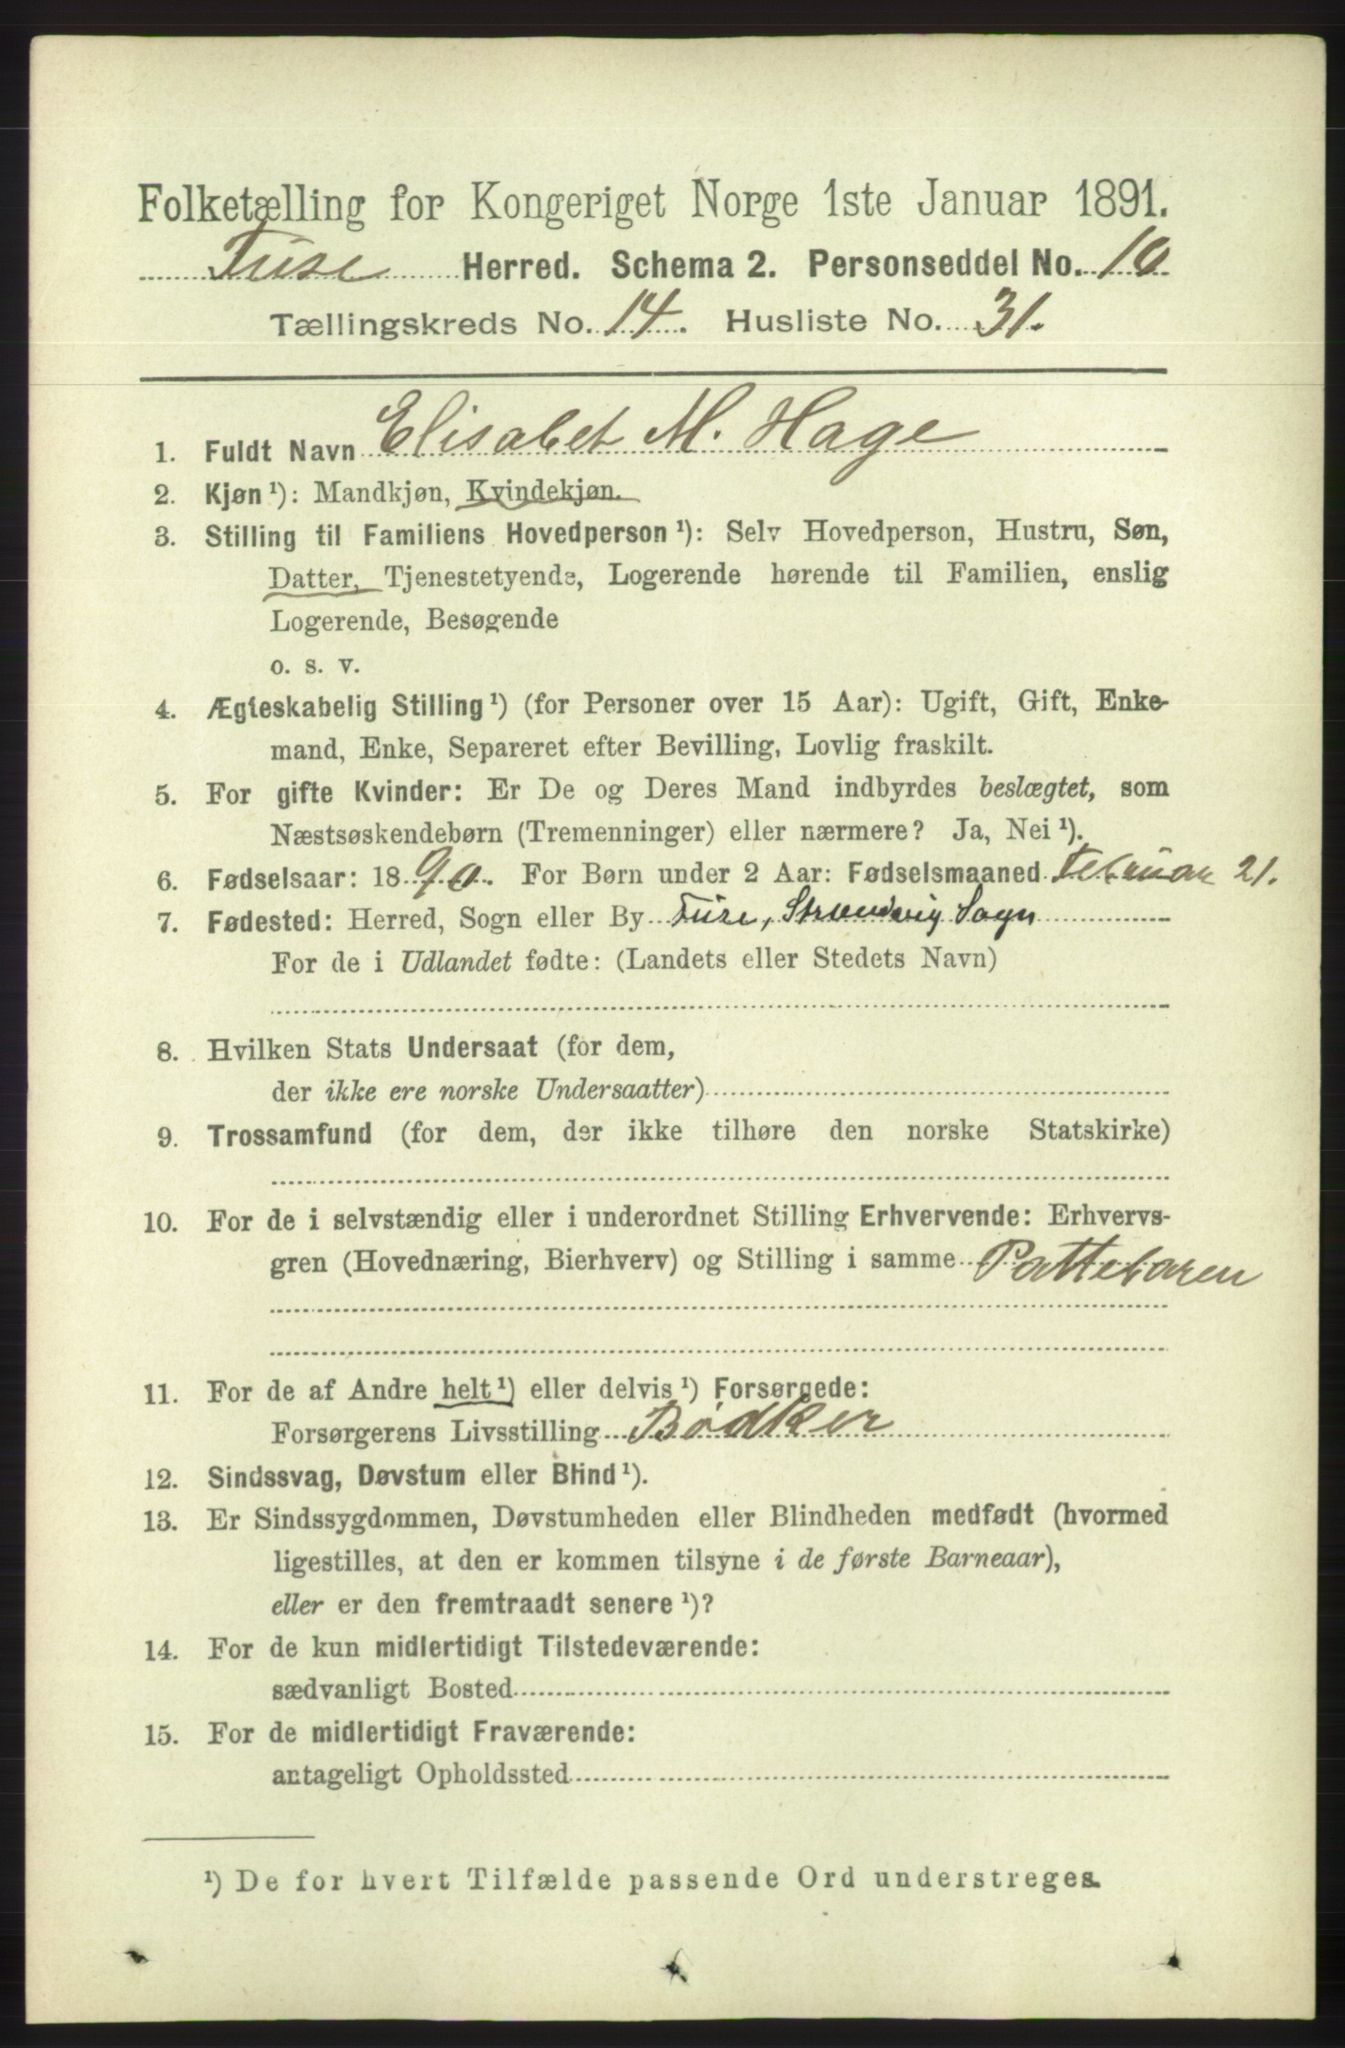 Folketælling for Kongeriget Norge 1ste Januar 1891.
Fuse Herred. Schema 2. Personseddel No. 10
Tællingskreds No. 14. Husliste No. 31.
1. Fuldt Navn Elisabet M. Hage
2. Kjøn ¹): Mandkjøn, Kvindekjøn.
3. Stilling til Familiens Hovedperson ¹): Selv Hovedperson, Hustru, Søn,
Datter, Tjenestetyende, Logerende hørende til Familien, enslig
Logerende, Besøgende
o. s. v.
4. Ægteskabelig Stilling ¹) (for Personer over 15 Aar): Ugift, Gift, Enke-
mand, Enke, Separeret efter Bevilling, Lovlig fraskilt.
5. For gifte Kvinder: Er De og Deres Mand indbyrdes beslægtet, som
Næstsøskendebørn (Tremenninger) eller nærmere? Ja, Nei ¹).
6. Fødselsaar: 1890. For Børn under 2 Aar: Fødselsmaaned Februar 21.
7. Fødested: Herred, Sogn eller By Fuse, Strandvig Sogn
For de i Udlandet fødte: (Landets eller Stedets Navn)
8. Hvilken Stats Undersaat (for dem,
der ikke ere norske Undersaatter)
9. Trossamfund (for dem, der ikke tilhøre den norske Statskirke)
10. For de i selvstændig eller i underordnet Stilling Erhvervende: Erhvervs-
gren (Hovednæring, Bierhverv) og Stilling i samme Pattebaren
11. For de af Andre helt ¹) eller delvis ¹) Forsørgede:
Forsørgerens Livsstilling Bødker
12. Sindssvag, Døvstum eller Blind ¹).
13. Er Sindssygdommen, Døvstumheden eller Blindheden medfødt (hvormed
ligestilles, at den er kommen tilsyne i de første Barneaar),
eller er den fremtraadt senere ¹)?
14. For de kun midlertidigt Tilstedeværende:
sædvanligt Bosted
15. For de midlertidigt Fraværende:
antageligt Opholdssted
¹) De for hvert Tilfælde passende Ord understreges.